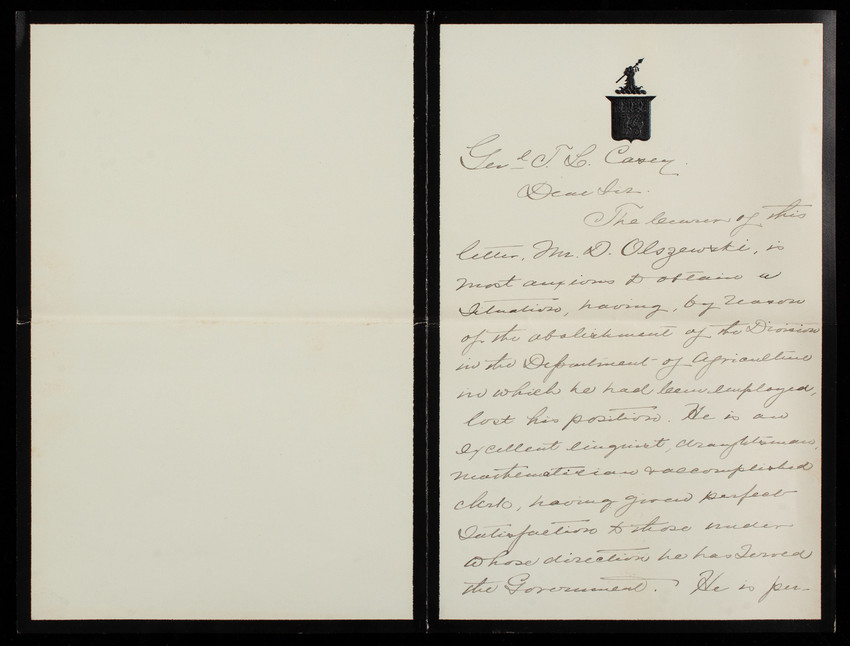 Genl T. L. Casey.
Dear Sir.
The bearer of this
letter, Mr. D. Olszewski, is
most anxious to obtain a
situation, having, by reason
of the abolishment of the Division
in the Department of Agriculture
in which he had been employed,
lost his position. He is an
excellent linguist, draughtsman,
mathematician & accomplished
clerk, having given perfect
satisfaction to those under
whose direction he has served
the Government. He is per-